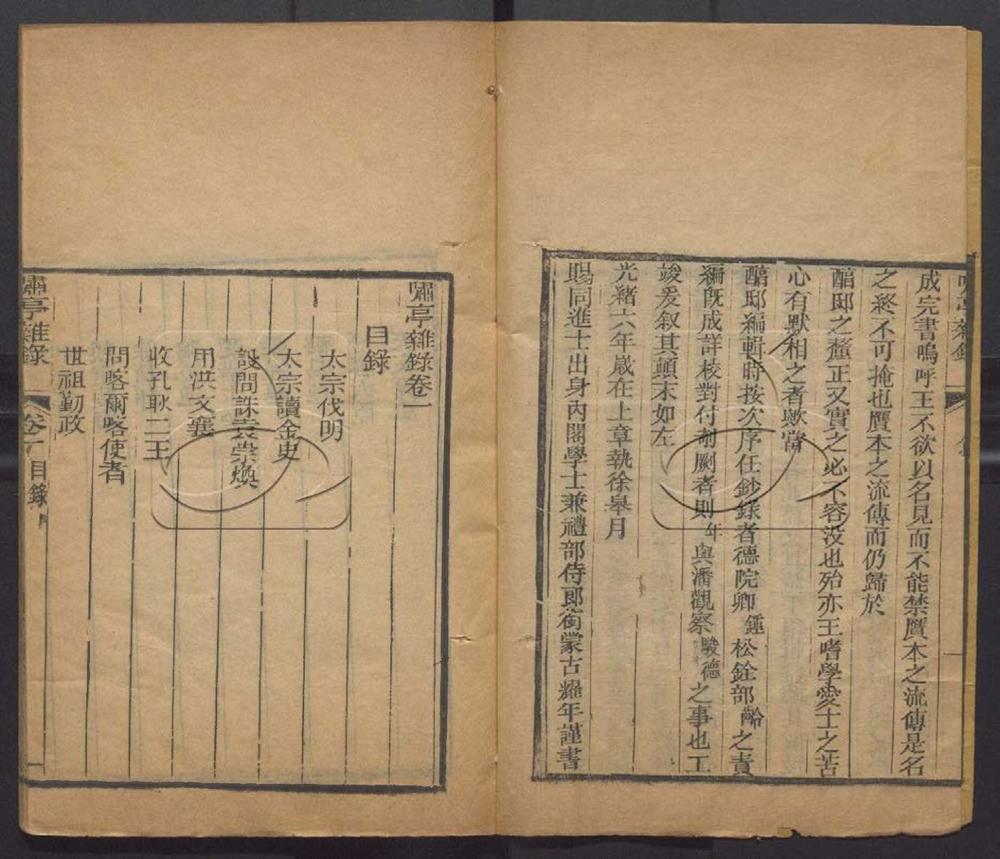 嘯亭雜錄
成完書嗚呼王不欲以名見而不能禁贋本之流傳是名
之終不可掩也贋本之流傳而仍歸於
醕邸之釐正又實之必不容没也殆亦王嗜學愛士之苦
心有默相之者歟當
醕邸編輯時按次序任鈔錄者德院卿鍾松銓部齡之責
編旣成詳校對付剞劂者則年與潘觀察駿德之事也工
竣爰叙其顛末如左
光緒六年歲在上章執徐皋月
賜同進士出身內閣學士兼禮部侍郎銜蒙古耀年謹書
嘯亭雜錄卷一
目錄
太宗伐明
太宗讀金史
設間誅袁崇煥
用洪文襄
收孔耿二王
問喀爾喀使者
世祖勤政
嘯亭雜錄 卷一 目錄 一